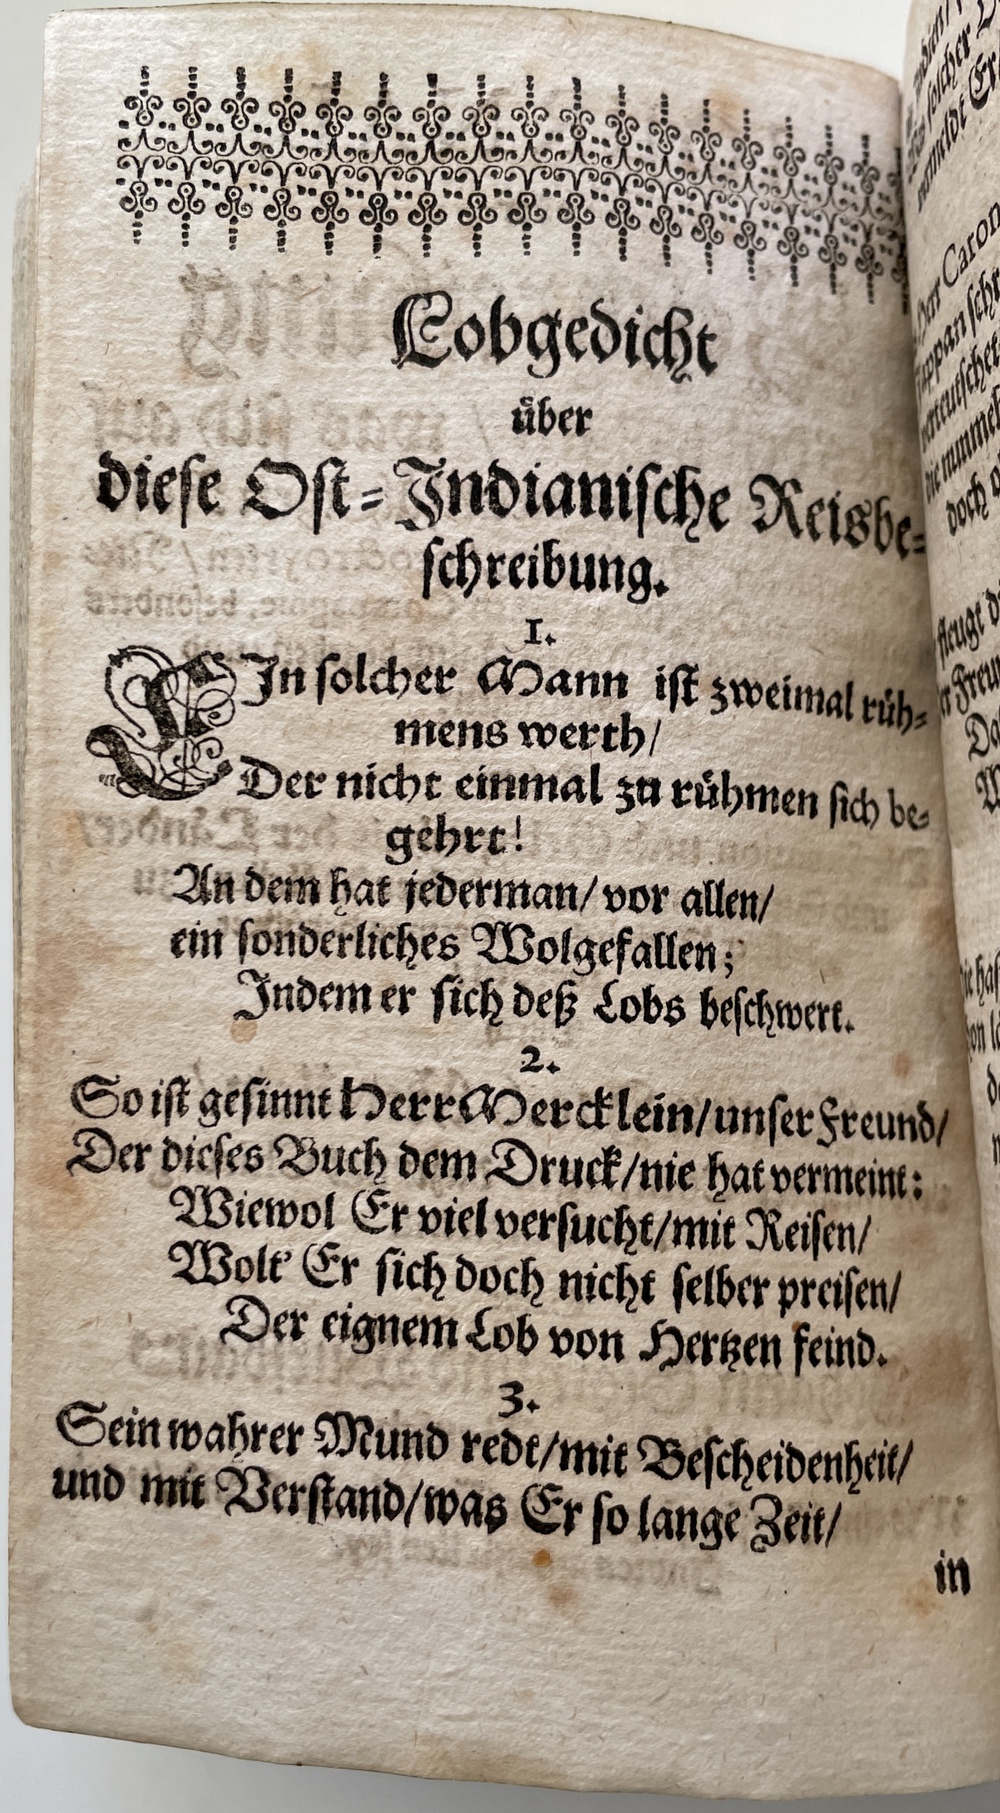 Lobgedicht
über
diese Ost-Indianische Reisbe-
schreibung.
1.
EIn solcher Mann ist zweimal rüh-
mens werth/
Der nicht einmal zu rühmen sich be-
gehrt!
An dem hat jederman/ vor allen/
ein sonderliches Wolgefallen;
Indem er sich deß Lobs beschwert.
2.
So ist gesinnt Herr Mercklein/ unser Freund/
Der dieses Buch dem Druck/ nie hat vermeint:
Wiewol Er viel versucht/ mit Reisen/
Wolt' Er sich doch nicht selber preisen/
Der eignem Lob von Hertzen feind.
3.
Sein wahrer Mund redt/ mit Bescheidenheit/
und mit Verstand/ was Er so lange Zeit/
in
solcher
Herr Caron
Jappan
doch